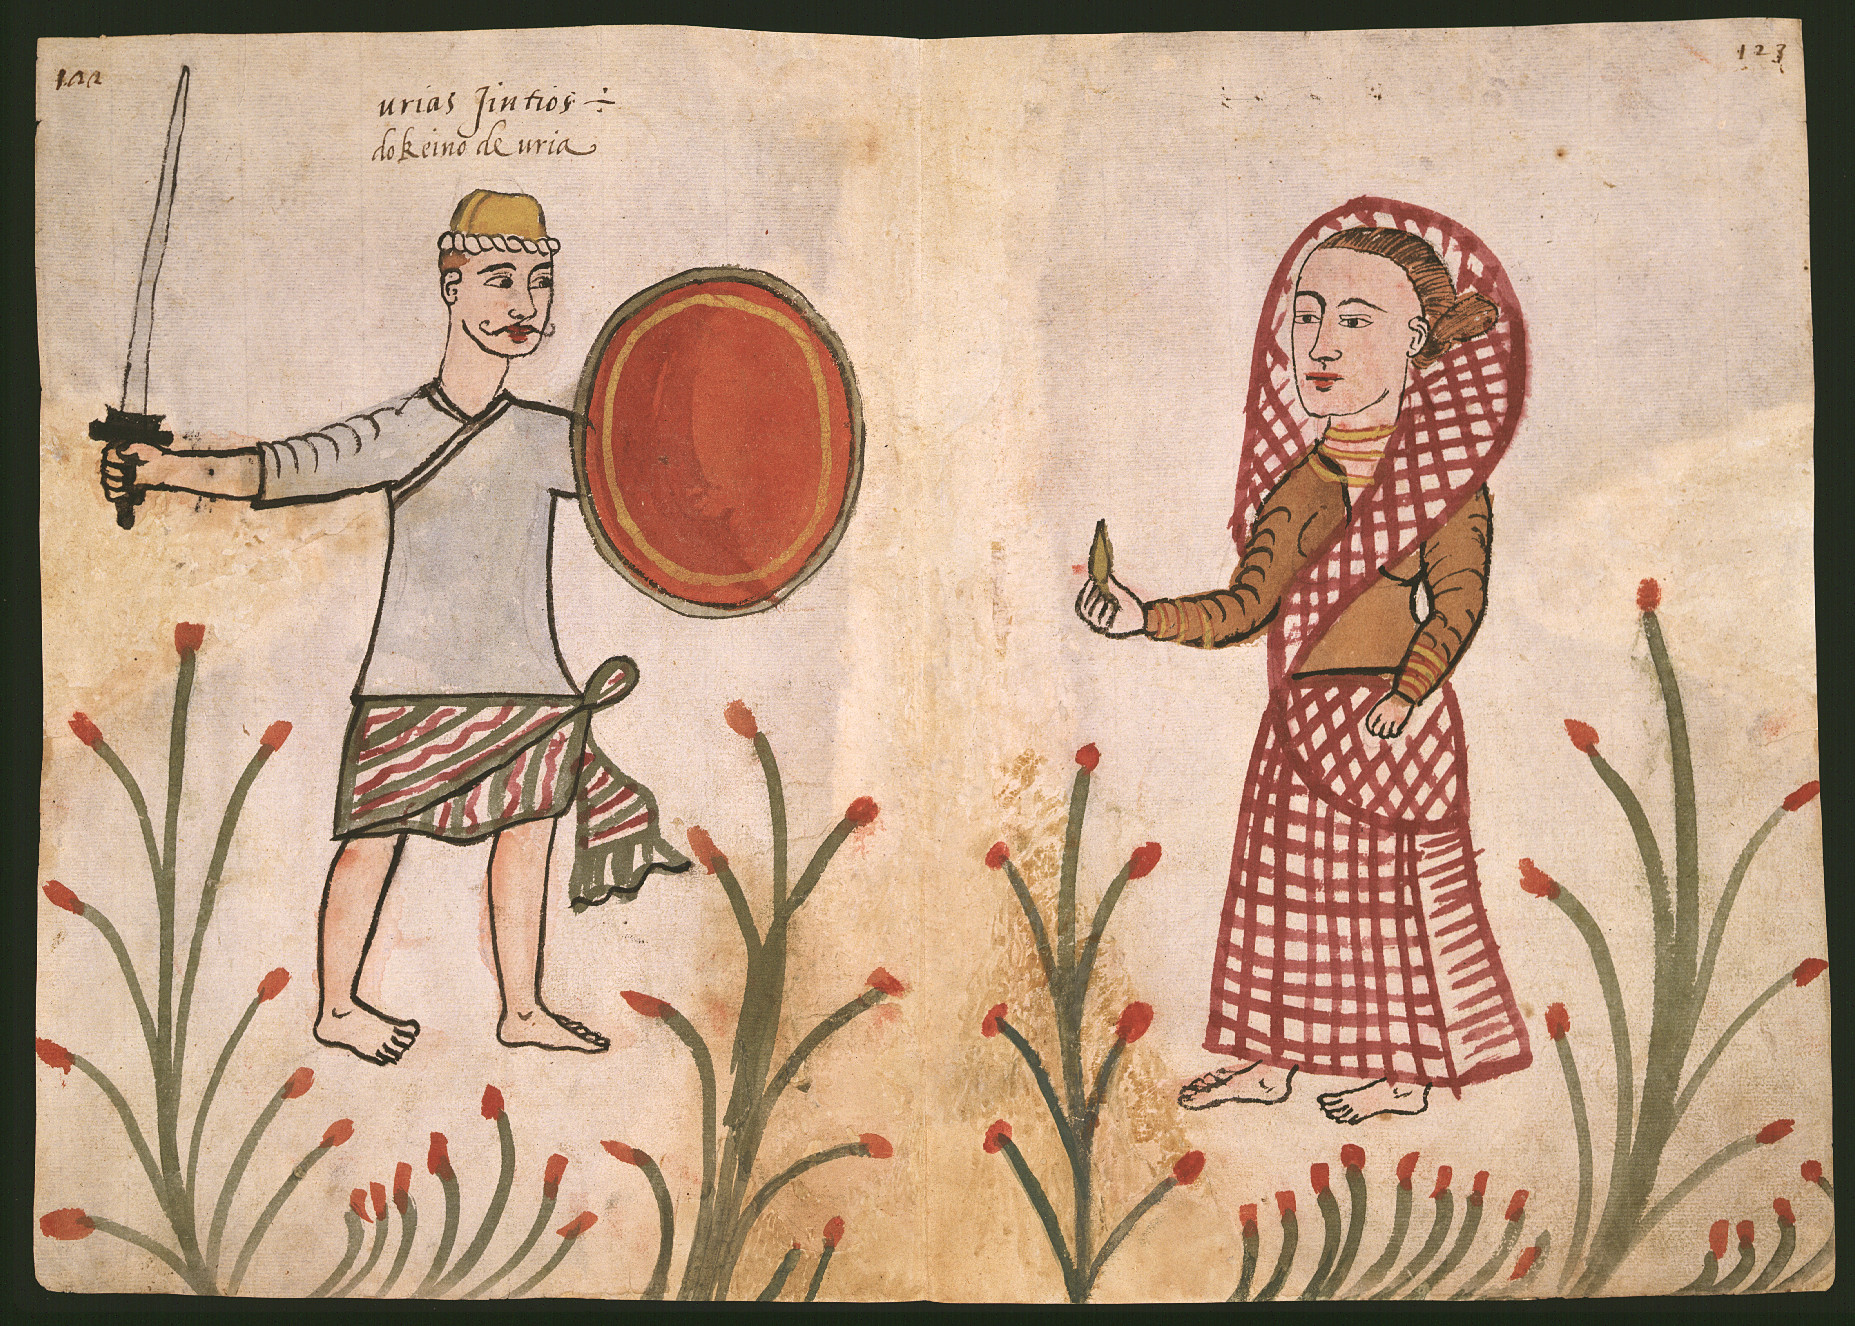 122
123
urias Jintios ÷
do Reino de uria